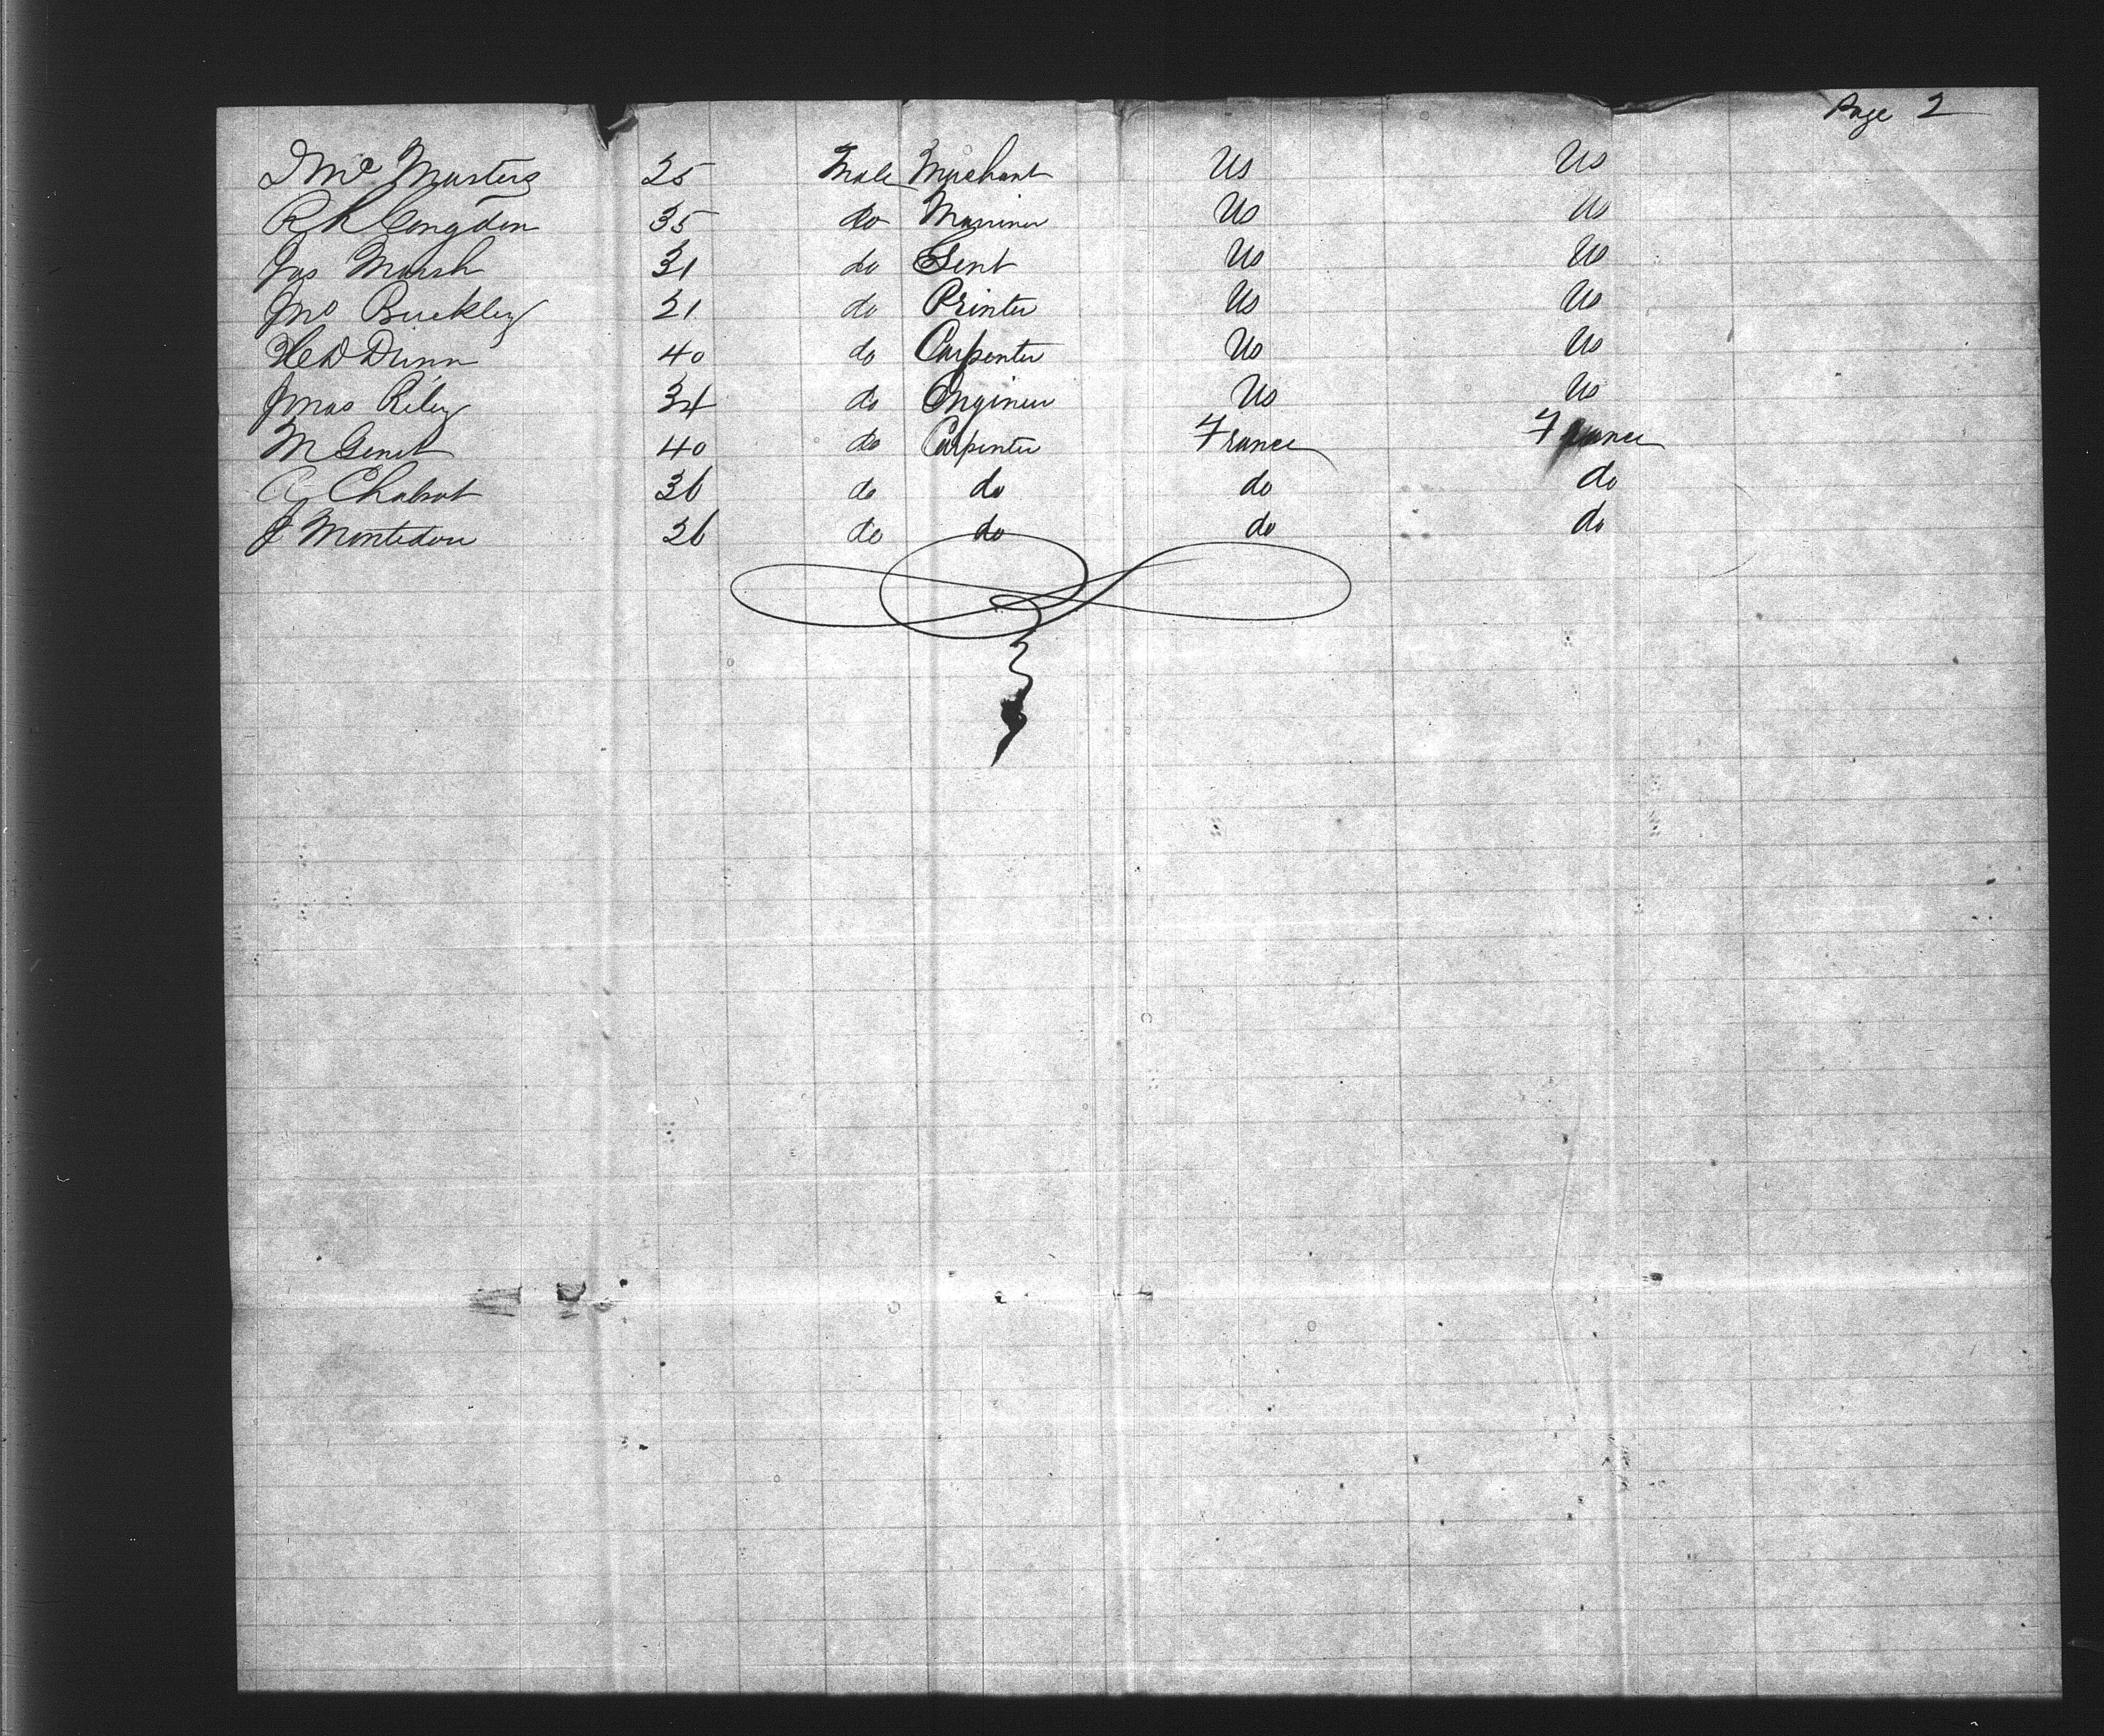 Page 2
J Mc Masters 25 Male Merchant Us Us
R H Congdon 35 do Mariner Us Us
Jas Marsh 31 do Gent Us Us
Jno Buckley 21 do Printer Us Us
H D Dunn 40 do Carpenter Us Us
Jonas Riley 34 do Engineer Us Us
M Genet 40 do Carpenter France France
A Chabot 36 do do do do
J 26 do do do do